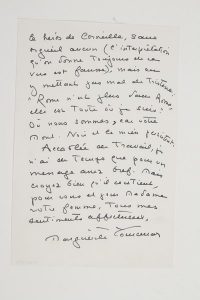 le héros de Corneille, sans
orgueil aucun (l'interprétation
qu'on donne toujours de ce
vers est fausse), mais en
y mettant pas mal de tristesse
"Rome n'est plus dans Rome,
elle est toute où je suis,"
Où nous sommes, car votre
Mont- Noir et le mien
Accablée de travail, je
n'ai de temps que pour un
message assez bref. Mais
croyez bien qu'il contient,
pour vous et pour Madame
votre femme, tous mes
sentiments affectueux,
Marguerite Yourcenar